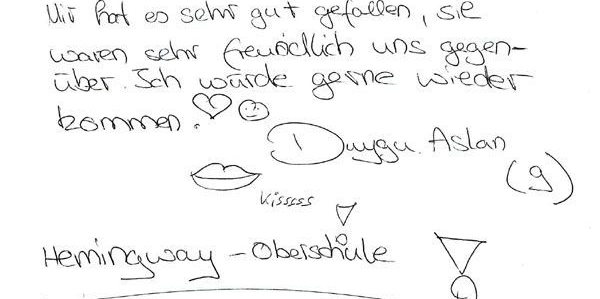 Mir hat es sehr gut gefallen, sie
waren sehr freundlich uns gegen-
über. Ich würde gerne wieder
kommen.
Duygu. Aslan
(9)
Kissess
Hemingway - Oberschule